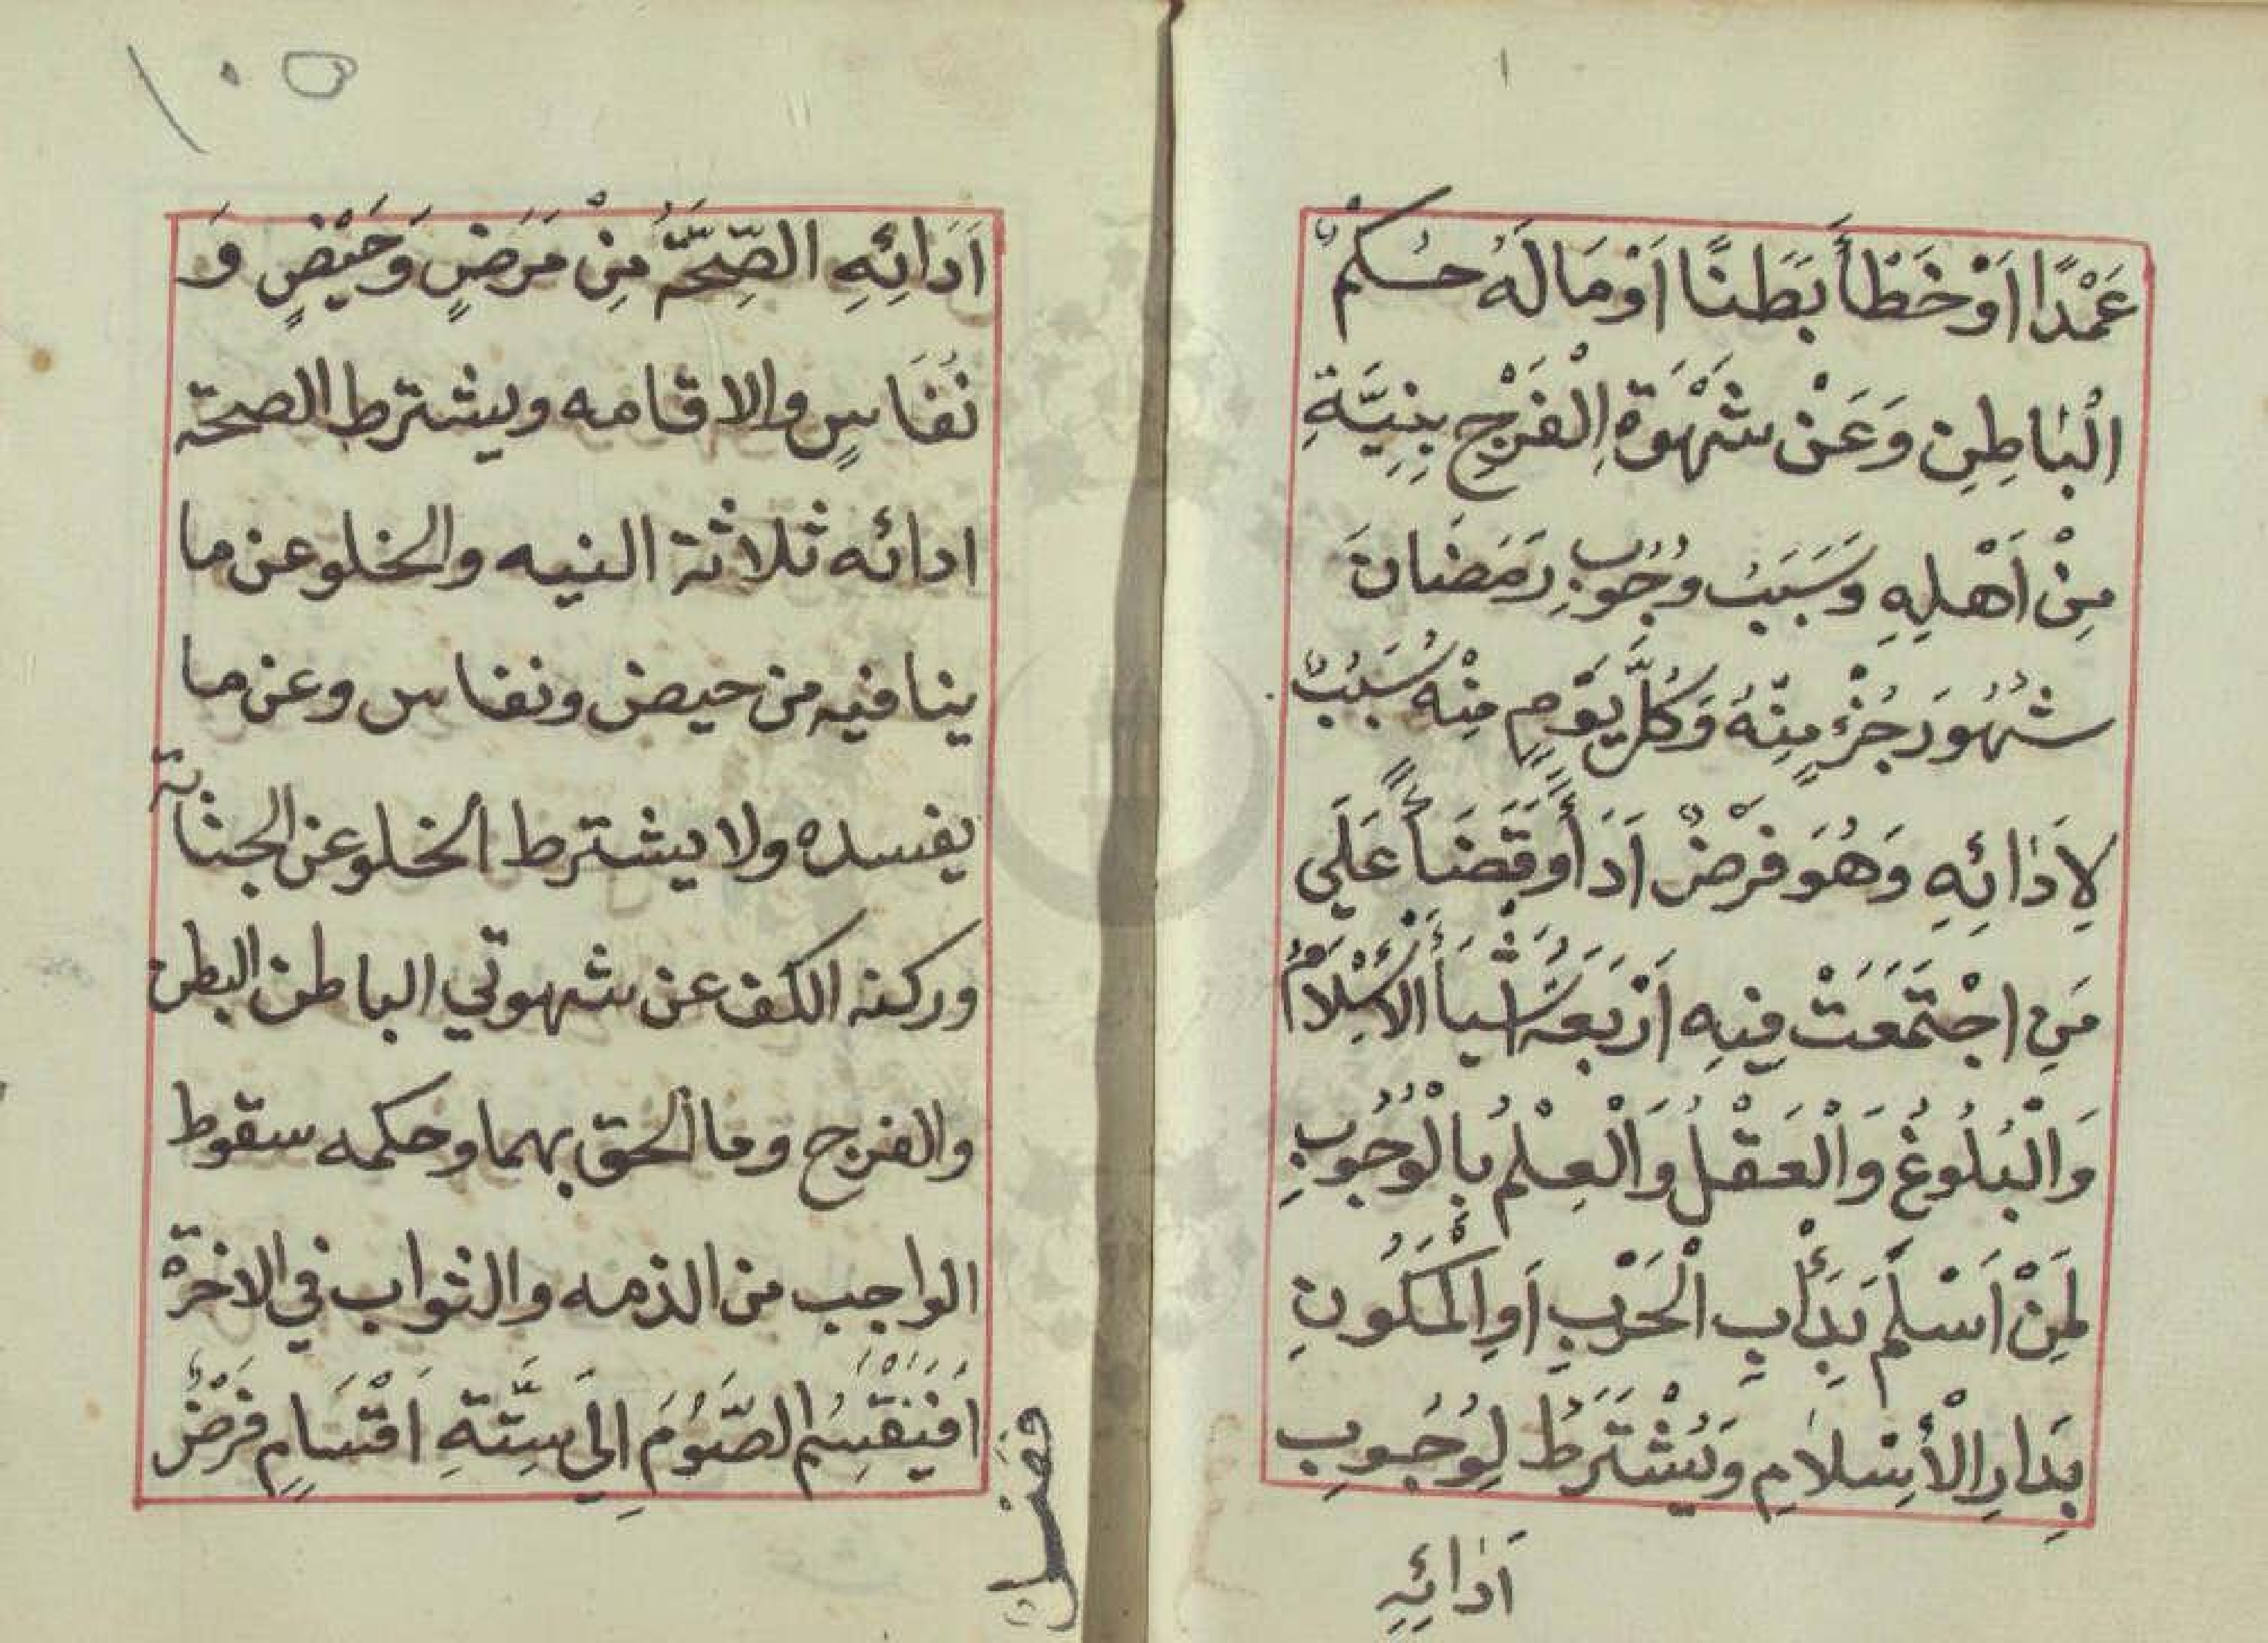 عَمْدًا اَوْ خَطْأً بَطَنًا اَوْ مَا لَهُ حُكْمٌ
الْبَاطِنِ وَعَنْ شَهْوَةِ الْفَرْجِ بِنِيَّةِ
مِنْ اَهْلِهِ وَسَبَبُ وُجُوبِ رَمَضَانَ
شُهُوَدُ جُزْءٍ مِنْهُ وَكُلُّ يَوْمٍ مِنْهُ سَبَبٌ
لِاَدَائِهِ وَهُوَ فَرْضٌ اَدَأً وَقَضَأً عَلَى
مَنِ اجْتَمَعَتْ فِيهِ اَرْبَعَةُ اَشْيَأَ الْأِسْلَامُ
وَالْبُلُوغُ وَالْعَقْلُ وَالْعِلْمُ بِالْوُجُوبِ
لِمَنْ اَسْلَمَ بِدَأْبِ الْحَرْبِ اَوِ الْمَكُونِ
بِدَارِ الْأِسْلَامِ وَيُشْتَرَطُ لِوُجُوبِ
اَدَائِهِ
١٠٥
اَدَائِهِ الصِّحَّةُ مِنْ مَرَضٍ وَحَيْضٍ وَ
نُفَاسٍ والاقامه ويشترط الصحة
ادائه ثلاثة النيه والخلو عن ما
ينافيه من حيض ونفاس وعن ما
يفسده ولا يشترط الخلو عن الجنابة
وركنه الكف عن شهوتي الباطن البطن
والفرج وما الحق بهما وحكمه سقوط
الواجب من الذمه والثواب في الاخرة
فَيَنْقَسِمُ الصَّوْمَ اِلَى سِتَّةِ اَقْسَامٍ فَرْضٌ
فصل